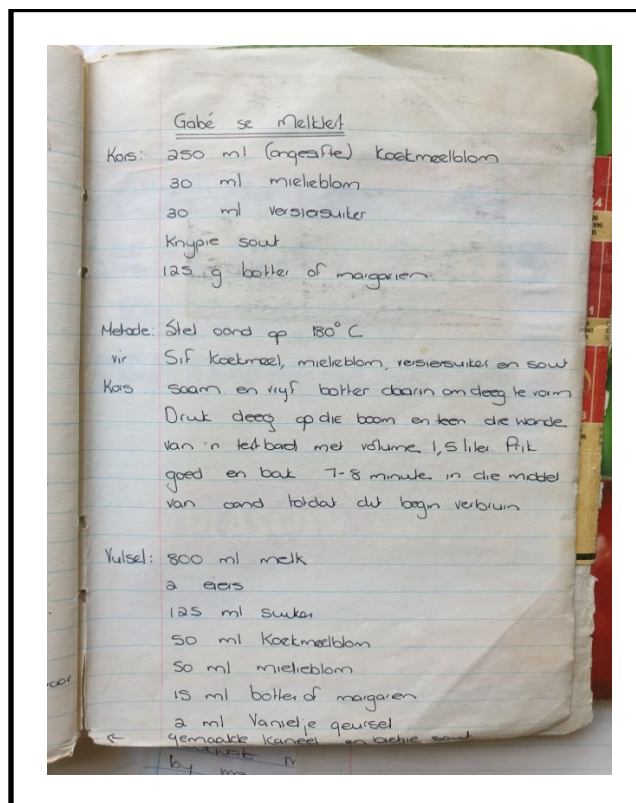 Gabé se Melktert
Kors: 250 ml (ongesifte) Koekmeelblom
30 ml mielieblom
30 ml versiersuiker
Knypie sout
125 g botter of margarien
Metode: Stel oond op 180° C
vir Sif Koekmeel, mielieblom, versiersuiker en sout
Kors saam en vryf botter daarin om deeg te vorm
Druk deeg op die boom en teen die wande
van 'n tertbad met volume 1,5 liter. Prik
goed en bak 7-8 minute in die middel
van oond totdat dit begin verbruin
Vulsel: 800 ml melk
2 eiers
125 ml suiker
50 ml Koekmeelblom
50 ml mielieblom
15 ml botter of margarien
2 ml Vanielje geursel
gemaalde kaneel en bietjie sout
by